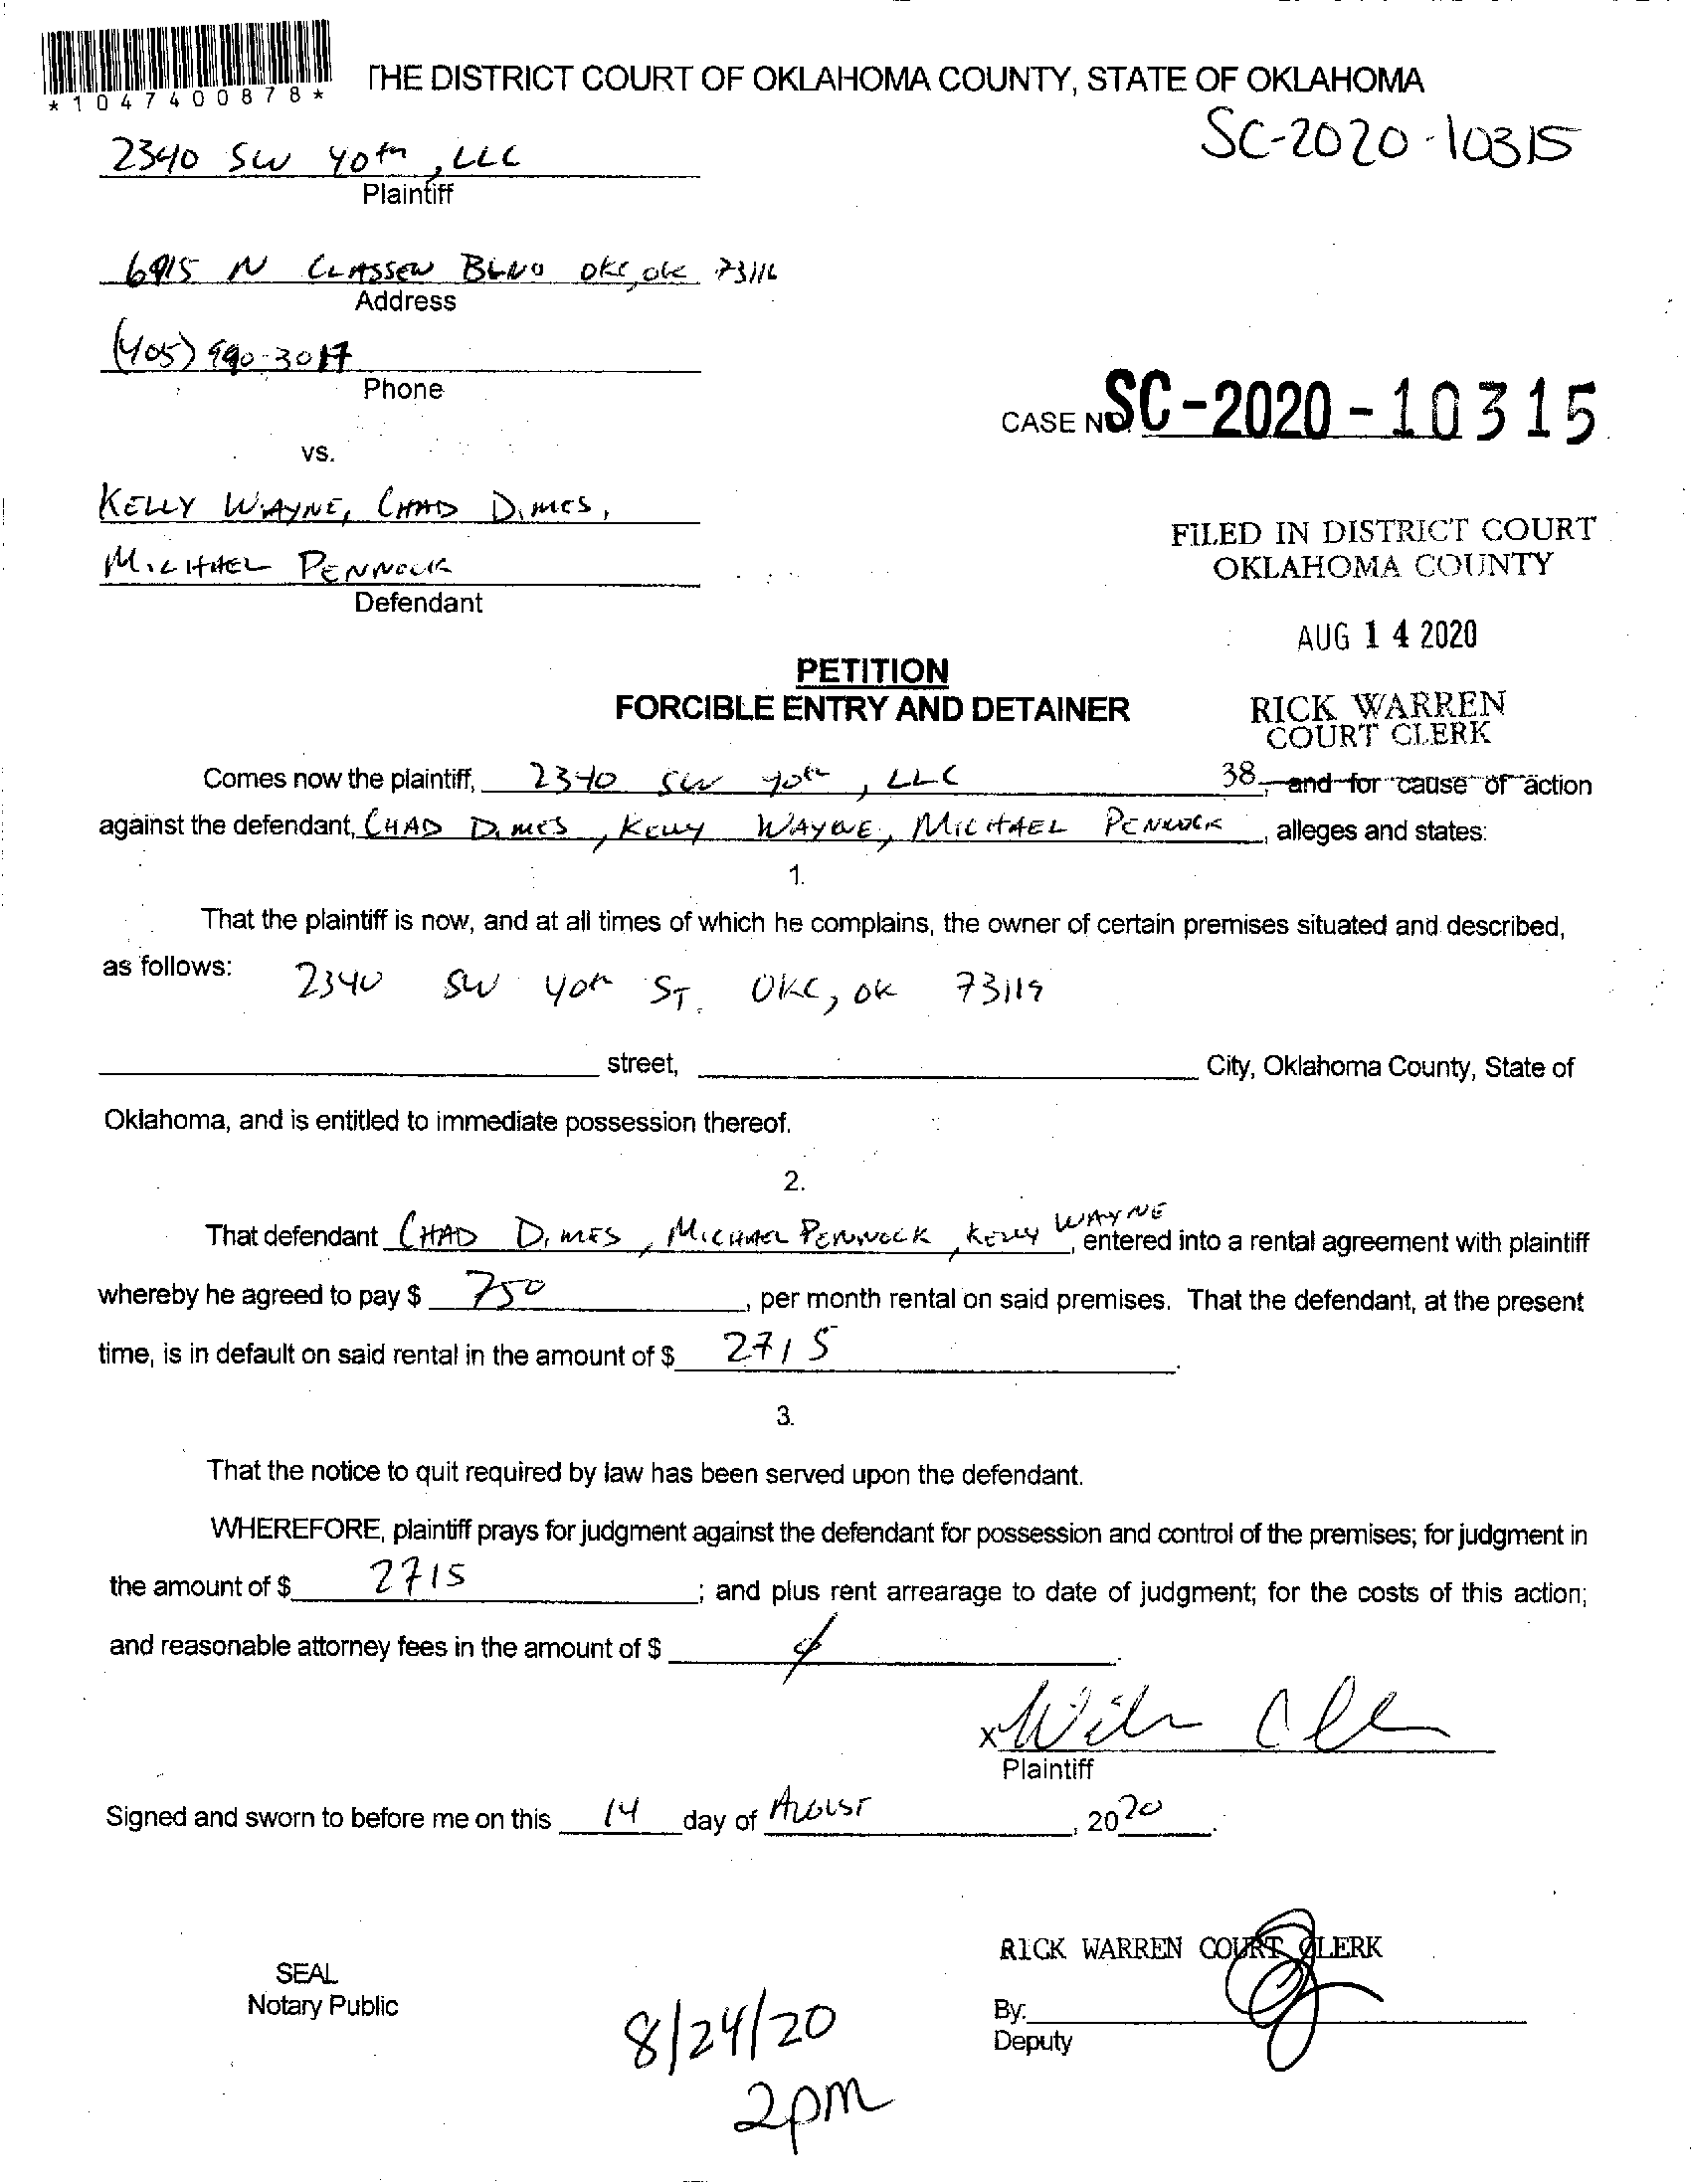 *1047400878*
THE DISTRICT COURT OF OKLAHOMA COUNTY, STATE OF OKLAHOMA
SC-2020-10315
2340 SW 40th, LLC
Plaintiff
6915 N CLASSEN BLVD OKC, OK 73116
Address
(405) 990-3017
Phone
CASE NO. SC-2020-10315
vs.
KELLY WAYNE, CHAD DIMES,
MICHAEL PENNOCK
Defendant
FILED IN DISTRICT COURT
OKLAHOMA COUNTY
AUG 14 2020
PETITION
FORCIBLE ENTRY AND DETAINER
RICK WARREN
COURT CLERK
Comes now the plaintiff, 2340 SW 40th, LLC 38, and for cause of action
against the defendant, CHAD DIMES, KELLY WAYNE, MICHAEL PENNOCK, alleges and states:
1.
That the plaintiff is now, and at all times of which he complains, the owner of certain premises situated and described,
as follows: 2340 SW 40th ST. OKC, OK 73119
street, City, Oklahoma County, State of
Oklahoma, and is entitled to immediate possession thereof.
2.
That defendant CHAD DIMES, MICHAEL PENNOCK, KELLY WAYNE, entered into a rental agreement with plaintiff
whereby he agreed to pay $ 750, per month rental on said premises. That the defendant, at the present
time, is in default on said rental in the amount of $ 2715.
3.
That the notice to quit required by law has been served upon the defendant.
WHEREFORE, plaintiff prays for judgment against the defendant for possession and control of the premises; for judgment in
the amount of $ 2715; and plus rent arrearage to date of judgment; for the costs of this action;
and reasonable attorney fees in the amount of $
x
Plaintiff
Signed and sworn to before me on this 14 day of AUGUST, 2020.
RICK WARREN COURT CLERK
SEAL
Notary Public
By:
Deputy
8/24/20
2pm